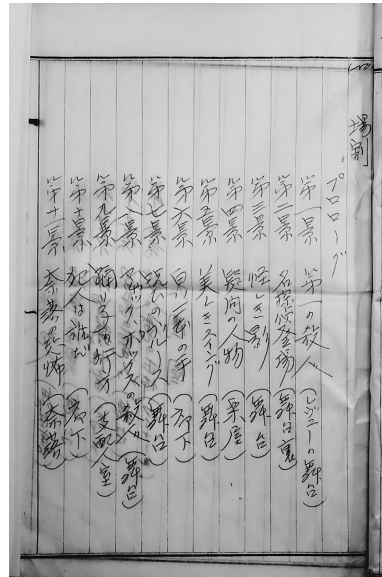 場割
プロローグ
第一景 第一の殺人 (レヴューの舞台)
第二景 名探偵登場 (舞台裏)
第三景 怪しき影 (舞台)
第四景 疑問の人物 (楽屋)
第五景 美しきスイング (舞台)
第六景 白い手 (廊下)
第七景 呪いのブルース (舞台)
第八景 マジック・ボックスの殺人 (舞台)
第九景 踊り子の行方 (支配人室)
第十景 犯人は誰だ (廊下)
第十一景 奈落の恐怖 (奈落)